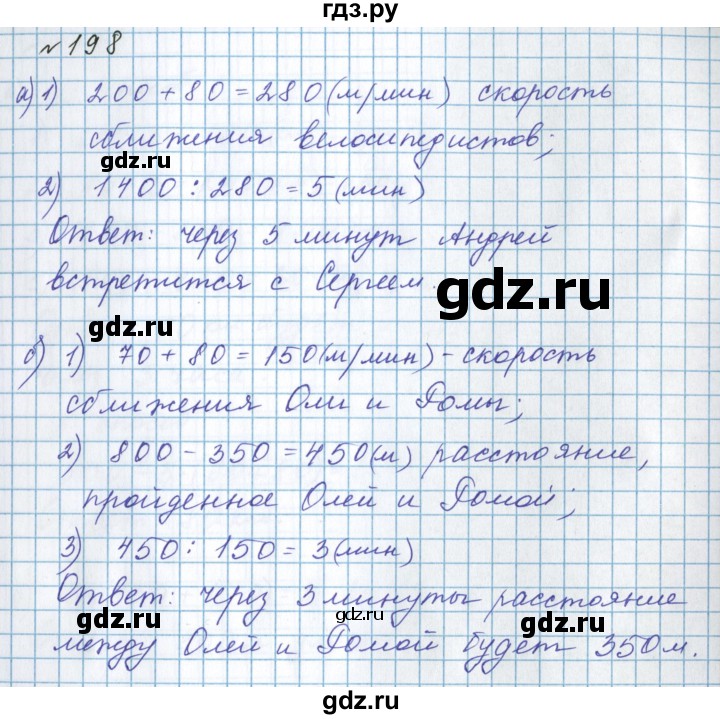 гдз.ру
№198
а) 1) 200 + 80 = 280 (м/мин) скорость
сближения велосипедистов;
gdz.ru
2) 1400 : 280 = 5 (мин)
Ответ: через 5 минут Андрей
встретится с Сергеем.
gdz.ru
gdz.ru
б) 1) 70 + 80 = 150 (м/мин) - скорость
сближения Оли и Ромы;
2) 800 - 350 = 450 (м) расстояние,
gdz.ru
пройденное Олей и Ромой;
3) 450 : 150 = 3 (мин)
Ответ: через 3 минуты расстояние
gdz.ru
gdz.ru
gdz.ru
между Олей и Ромой будет 350 м.
gdz.ru